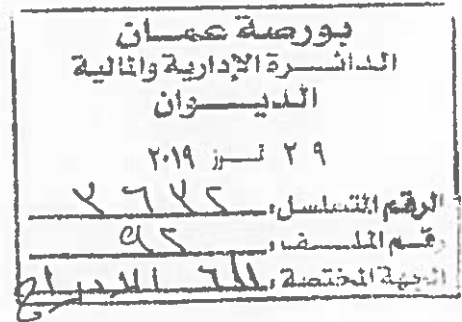 بورصة عمان
الدائرة الإدارية والمالية
الديوان
٢٩ تموز ٢٠١٩
الرقم المتسلسل: ٣٦٧٢
رقم الملف:
الجهة المختصة: